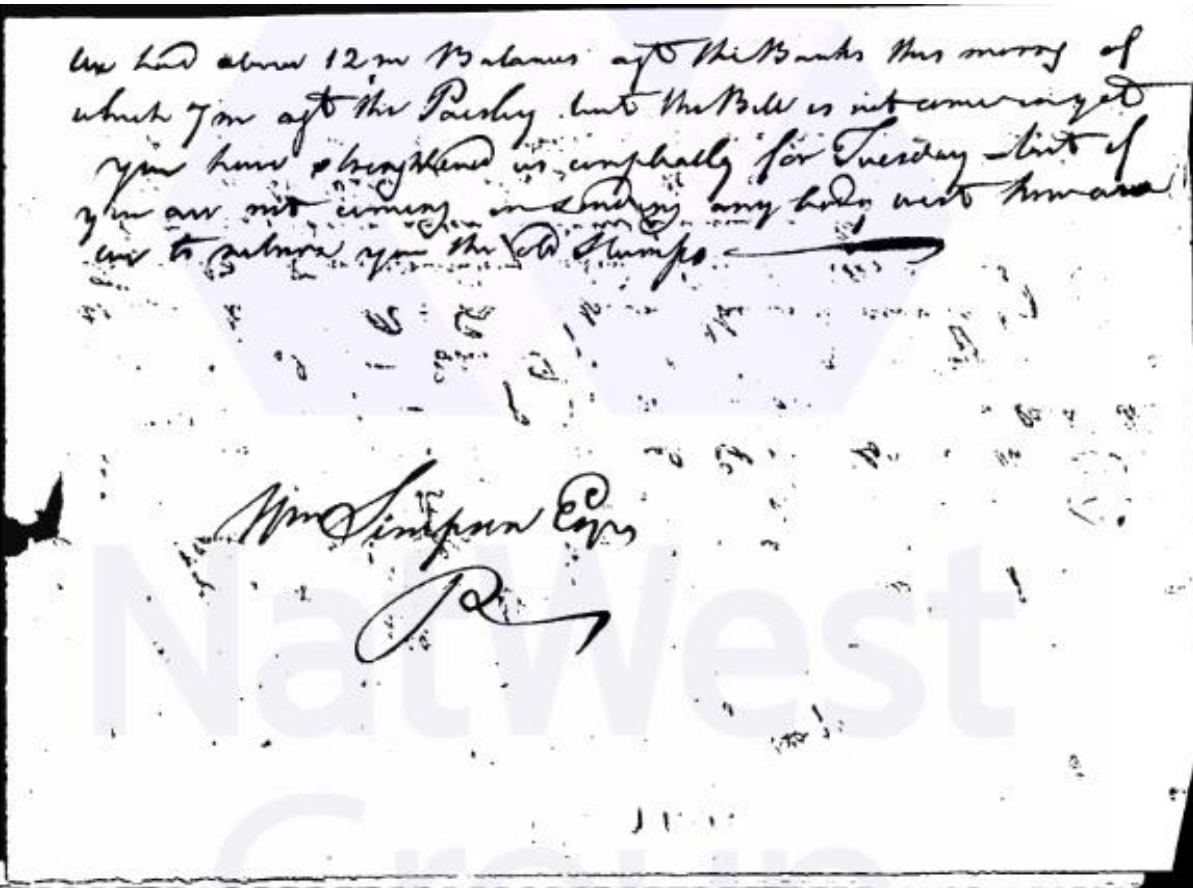 We had above 12 m Balances agt the Banks this morng of
which 7 m agt the Paisley but the Bill is not come in yet
you have strengthened us compleatly for Tuesday – but if
you are not coming or sending any body west how are
we to return you the old Stamps
Wm Simpson Esqr
R
NatWest
Group